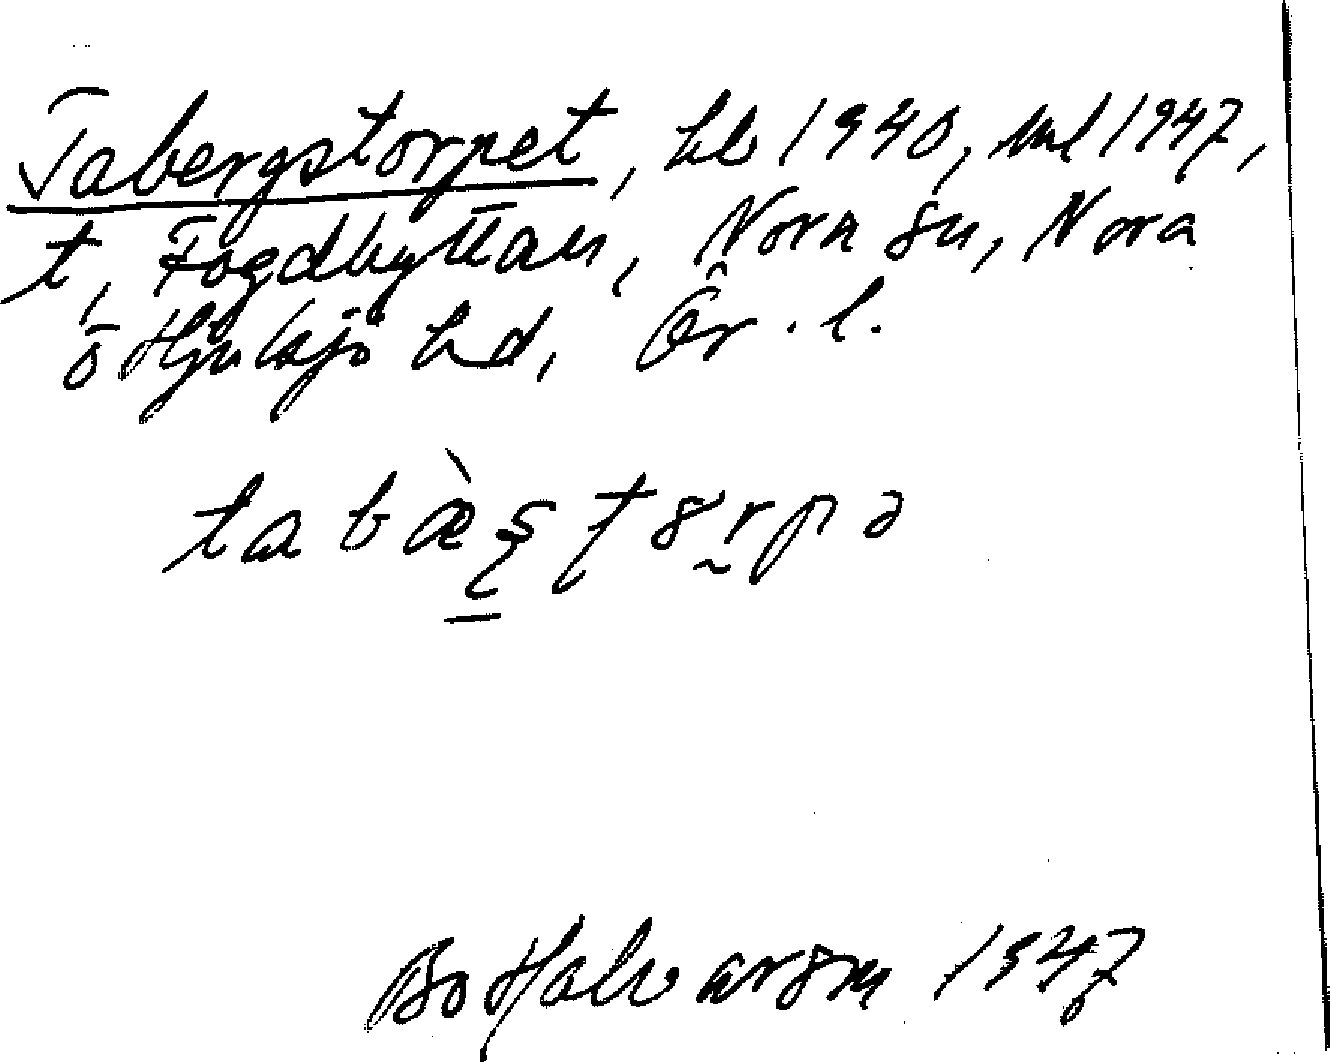 Tabergstorpet, hb 1940, ml 1947,
t, Fogdhyttan, Nora sn, Nora
o Hjulsjö hd, Ör. l.
tabæ̀ştorpə
Bo Halvarson 1947